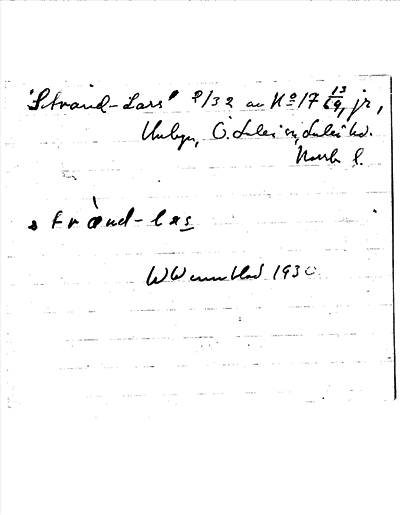 "Strand-Lars" 2/32 av Nº17 13/64, jr,
Ö. Luleå sn, Luleå kd.
Norrb. l.
strànd-las
W Wennblad 1930